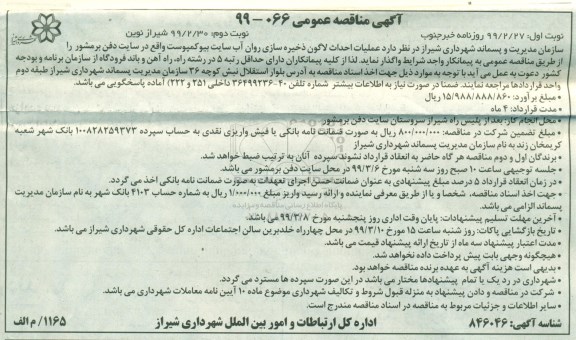 آگهی مناقصه عمومی ۰۶۶ - ۹۹
نوبت اول: ۹۹/۲/۲۷ روزنامه خبرجنوب
نوبت دوم: ۹۹/۲/۳۰ شیراز نوین
سازمان مدیریت و پسماند شهرداری شیراز در نظر دارد عملیات احداث لاگون ذخیره سازی روان آب سایت بیوکمپوست واقع در سایت دفن برمشور را
از طریق مناقصه عمومی به پیمانکار واجد شرایط واگذار نماید. لذا از کلیه پیمانکاران دارای حداقل رتبه ۵ در رشته راه، راه آهن و باند فرودگاه از سازمان برنامه و بودجه
کشور دعوت به عمل می آید با توجه به موارد ذیل جهت اخذ اسناد مناقصه به آدرس بلوار استقلال نبش کوچه ۳۶ سازمان مدیریت پسماند شهرداری شیراز طبقه دوم
واحد قراردادها مراجعه نمایند. ضمنا در صورت نیاز به اطلاعات بیشتر شماره تلفن ۴۰-۳۶۴۹۹۲۳۶ داخلی ۲۵۱ و ۲۲۲) آماده پاسخگویی می باشد.
• مبلغ برآورد: ۱۵/۹۸۸/۸۸۸/۸۶۰ ریال
• مدت قرارداد: ۴ ماه
• محل انجام کار: بعد از پلیس راه شیراز سروستان سایت دفن برمشور
• مبلغ تضمین شرکت در مناقصه: ۸۰۰/۰۰۰/۰۰۰ ریال به صورت ضمانت نامه بانکی یا فیش واریزی نقدی به حساب سپرده ۱۰۰۸۲۸۲۵۹۳۷۳ بانک شهر شعبه
کریمخان زند به نام سازمان مدیریت پسماند شهرداری شیراز
• برندگان اول و دوم مناقصه هر گاه حاضر به انعقاد قرارداد نشوند سپرده آنان به ترتیب ضبط خواهد شد.
• جلسه توجیهی ساعت ۱۰ صبح روز سه شنبه مورخ ۹۹/۳/۶ در محل سایت دفن برمشور می باشد.
• در زمان انعقاد قرارداد ۵ درصد مبلغ پیشنهادی به عنوان ضمانت حسن اجرای تعهدات به صورت ضمانت نامه بانکی اخذ می گردد.
• جهت اخذ اسناد مناقصه، شخصا و یا از طریق معرفی نماینده و ارائه رسید واریز مبلغ ۱/۰۰۰/۰۰۰ ریال به شماره حساب ۴۱۰۳ بانک شهر به نام سازمان مدیریت
پسماند الزامی می باشد.
• آخرین مهلت تسلیم پیشنهادات: پایان وقت اداری روز پنجشنبه مورخ ۹۹/۳/۸ می باشد.
• تاریخ بازگشایی پاکات: روز شنبه ساعت ۱۵ مورخ ۹۹/۳/۱۰ در محل چهارراه خلدبرین سالن اجتماعات اداره کل حقوقی شهرداری شیراز می باشد.
• مدت اعتبار پیشنهاد سه ماه از تاریخ ارائه پیشنهاد قیمت می باشد.
• هیچگونه وجهی بابت پیش پرداخت داده نخواهد شد.
• بدیهی است هزینه آگهی به عهده برنده مناقصه خواهد بود.
• شهرداری در رد یک یا تمام پیشنهادها مختار می باشد در این صورت سپرده ها مسترد می گردد.
• شرکت در مناقصه و دادن پیشنهاد به منزله قبول شروط و تکالیف شهرداری موضوع ماده ۱۰ آیین نامه معاملات شهرداری می باشد.
• سایر اطلاعات و جزئیات مربوط به مناقصه در اسناد مناقصه مندرج است.
شناسه آگهی: ۸۴۶۰۴۶
اداره کل ارتباطات و امور بین الملل شهرداری شیراز
۱۱۶۵/م الف